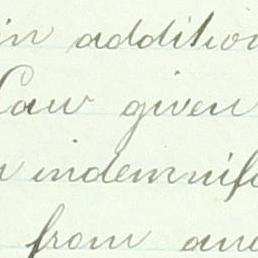 in addition
Law given
indemnif
from and